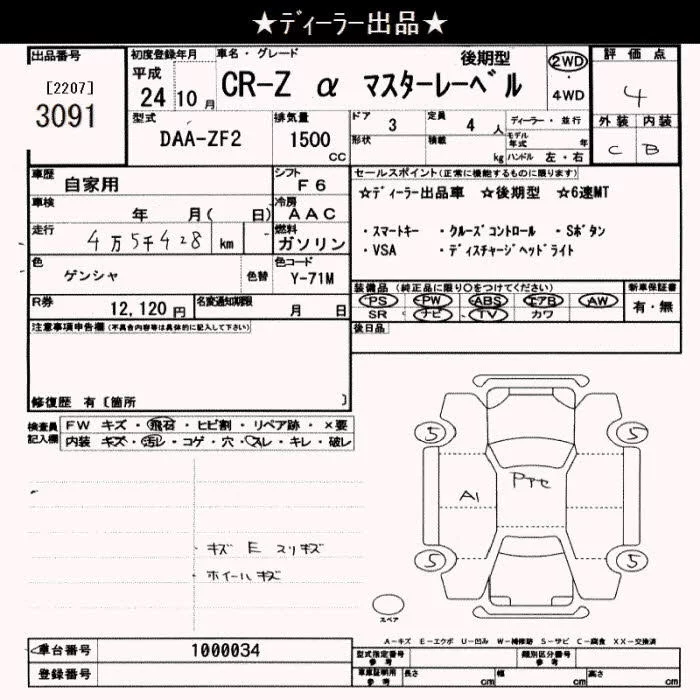 ★ディーラー出品★
出品番号
[2207]
3091
初度登録年月
平成
24 10 月
車名・グレード
後期型
CR-Z α マスターレーベル
2WD
・
4WD
評価点
4
外装 内装
C B
型式
DAA-ZF2
排気量
1500
CC
ドア
3
定員
4 人
形状
積載
kg
ディーラー・並行
モデル年式 年
ハンドル 左・右
車歴
自家用
シフト
F6
車検
年 月( 日)
冷房
AAC
走行
4万5千428 km
燃料
ガソリン
色
ゲンシャ
色替
色コード
Y-71M
R券
12,120 円
名変通知期限
月 日
セールスポイント(正常に機能するものに限ります)
☆ディーラー出品車 ☆後期型 ☆6速MT
・スマートキー ・クルーズコントロール ・Sボタン
・VSA ・ディスチャージヘッドライト
装備品(純正品に限り○をつけてください)
PS PW ABS エアB AW
SR ナビ TV カワ
新車保証書
有・無
後日品
注意事項申告欄(不具合内容等は具体的に記入して下さい)
修復歴 有〔箇所 〕
検査員記入欄
FW キズ・飛石・ヒビ割・リペア跡・×要
内装 キズ・汚レ・コゲ・穴・スレ・キレ・破レ
・キズ E スリキズ
・ホイールキズ
5 5
A1
5 5
スペア
A-キズ E-エクボ U-凹み W-補修跡 S-サビ C-腐食 XX-交換済
車台番号
1000034
登録番号
型式指定番号
参考
類別区分番号
参考
車庫証明用
参考
長さ cm
幅 cm
高さ cm